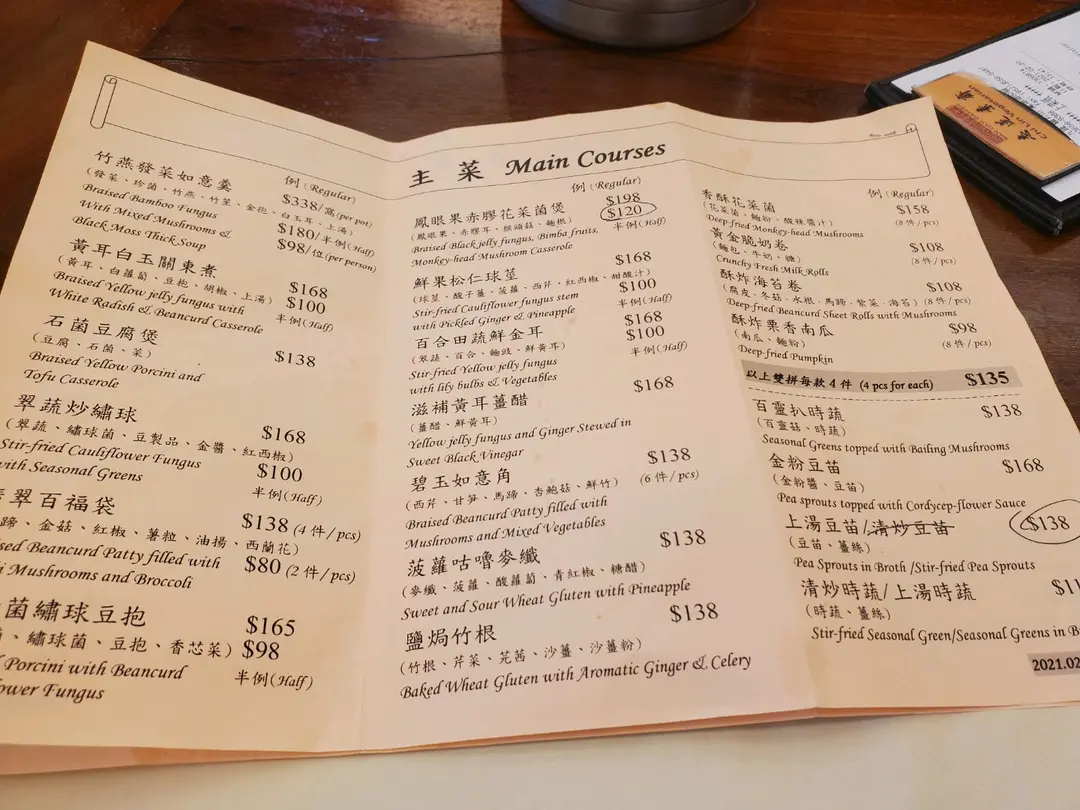 主菜 Main Courses
竹燕發菜如意羹
例 (Regular)
(發菜、珍菌、竹燕、竹笙、金抱、白玉耳、上湯)
$338/窩(per pot)
Braised Bamboo Fungus
With Mixed Mushrooms &
$180/半例(Half)
Black Moss Thick Soup
$98/位(per person)
黃耳白玉關東煮
(黃耳、白蘿蔔、豆抱、胡椒、上湯)
$168
Braised Yellow jelly fungus with
$100
White Radish & Beancurd Casserole
半例(Half)
石菌豆腐煲
(豆腐、石菌、菜)
$138
Braised Yellow Porcini and
Tofu Casserole
翠蔬炒繡球
(翠蔬、繡球菌、豆製品、金醬、紅西椒)
$168
Stir-fried Cauliflower Fungus
$100
with Seasonal Greens
半例(Half)
翠百福袋
蹄、金菇、紅椒、薯粒、油揚、西蘭花)
$138 (4 件/pcs)
Beancurd Patty filled with
$80 (2 件/pcs)
Mushrooms and Broccoli
菌繡球豆抱
$165
、繡球菌、豆抱、香芯菜)
$98
Porcini with Beancurd
半例(Half)
Fungus
例 (Regular)
鳳眼果赤膠花菜菌煲
$198
$120
(鳳眼果、赤膠耳、猴頭菇、麵根)
半例(Half)
Braised Black jelly fungus, Bimba fruits,
Monkey-head Mushroom Casserole
鮮果松仁球莖
$168
(球莖、酸子薑、菠蘿、西芹、紅西椒、甜酸汁)
$100
Stir-fried Cauliflower fungus stem
半例(Half)
with Pickled Ginger & Pineapple
百合田蔬鮮金耳
$168
$100
(翠蔬、百合、麵豉、鮮黃耳)
半例(Half)
Stir-fried Yellow jelly fungus
with lily bulbs & Vegetables
滋補黃耳薑醋
$168
(薑醋、鮮黃耳)
Yellow jelly fungus and Ginger Stewed in
Sweet Black Vinegar
碧玉如意角
$138
(西芹、甘筍、馬蹄、杏鮑菇、鮮竹)
(6 件/pcs)
Braised Beancurd Patty filled with
Mushrooms and Mixed Vegetables
菠蘿咕嚕麥纖
$138
(麥纖、菠蘿、酸蘿蔔、青紅椒、糖醋)
Sweet and Sour Wheat Gluten with Pineapple
鹽焗竹根
$138
(竹根、芹菜、芫茜、沙薑、沙薑粉)
Baked Wheat Gluten with Aromatic Ginger & Celery
例 (Regular)
香酥花菜菌
$158
(花菜菌、麵粉、酸辣醬汁)
(8 件/pcs)
Deep-fried Monkey-head Mushrooms
黃金脆奶卷
$108
(麵包、牛奶、糖)
(8 件/pcs)
Crunchy Fresh Milk Rolls
酥炸海苔卷
$108
(腐皮、冬菇、水根、馬蹄、紫菜、海苔)
(8 件/pcs)
Deep-fried Beancurd Sheet Rolls with Mushrooms
酥炸栗香南瓜
$98
(南瓜、麵粉)
(8 件/pcs)
Deep-fried Pumpkin
以上雙拼每款 4 件 (4 pcs for each) $135
百靈扒時蔬
$138
(百靈菇、時蔬)
Seasonal Greens topped with Bailing Mushrooms
金粉豆苗
$168
(金粉醬、豆苗)
Pea sprouts topped with Cordycep-flower Sauce
上湯豆苗/清炒豆苗
$138
(豆苗、薑絲)
Pea Sprouts in Broth /Stir-fried Pea Sprouts
清炒時蔬/上湯時蔬
$11
(時蔬、薑絲)
Stir-fried Seasonal Green/Seasonal Greens in B
2021.02
Chi Lin Vegetarian